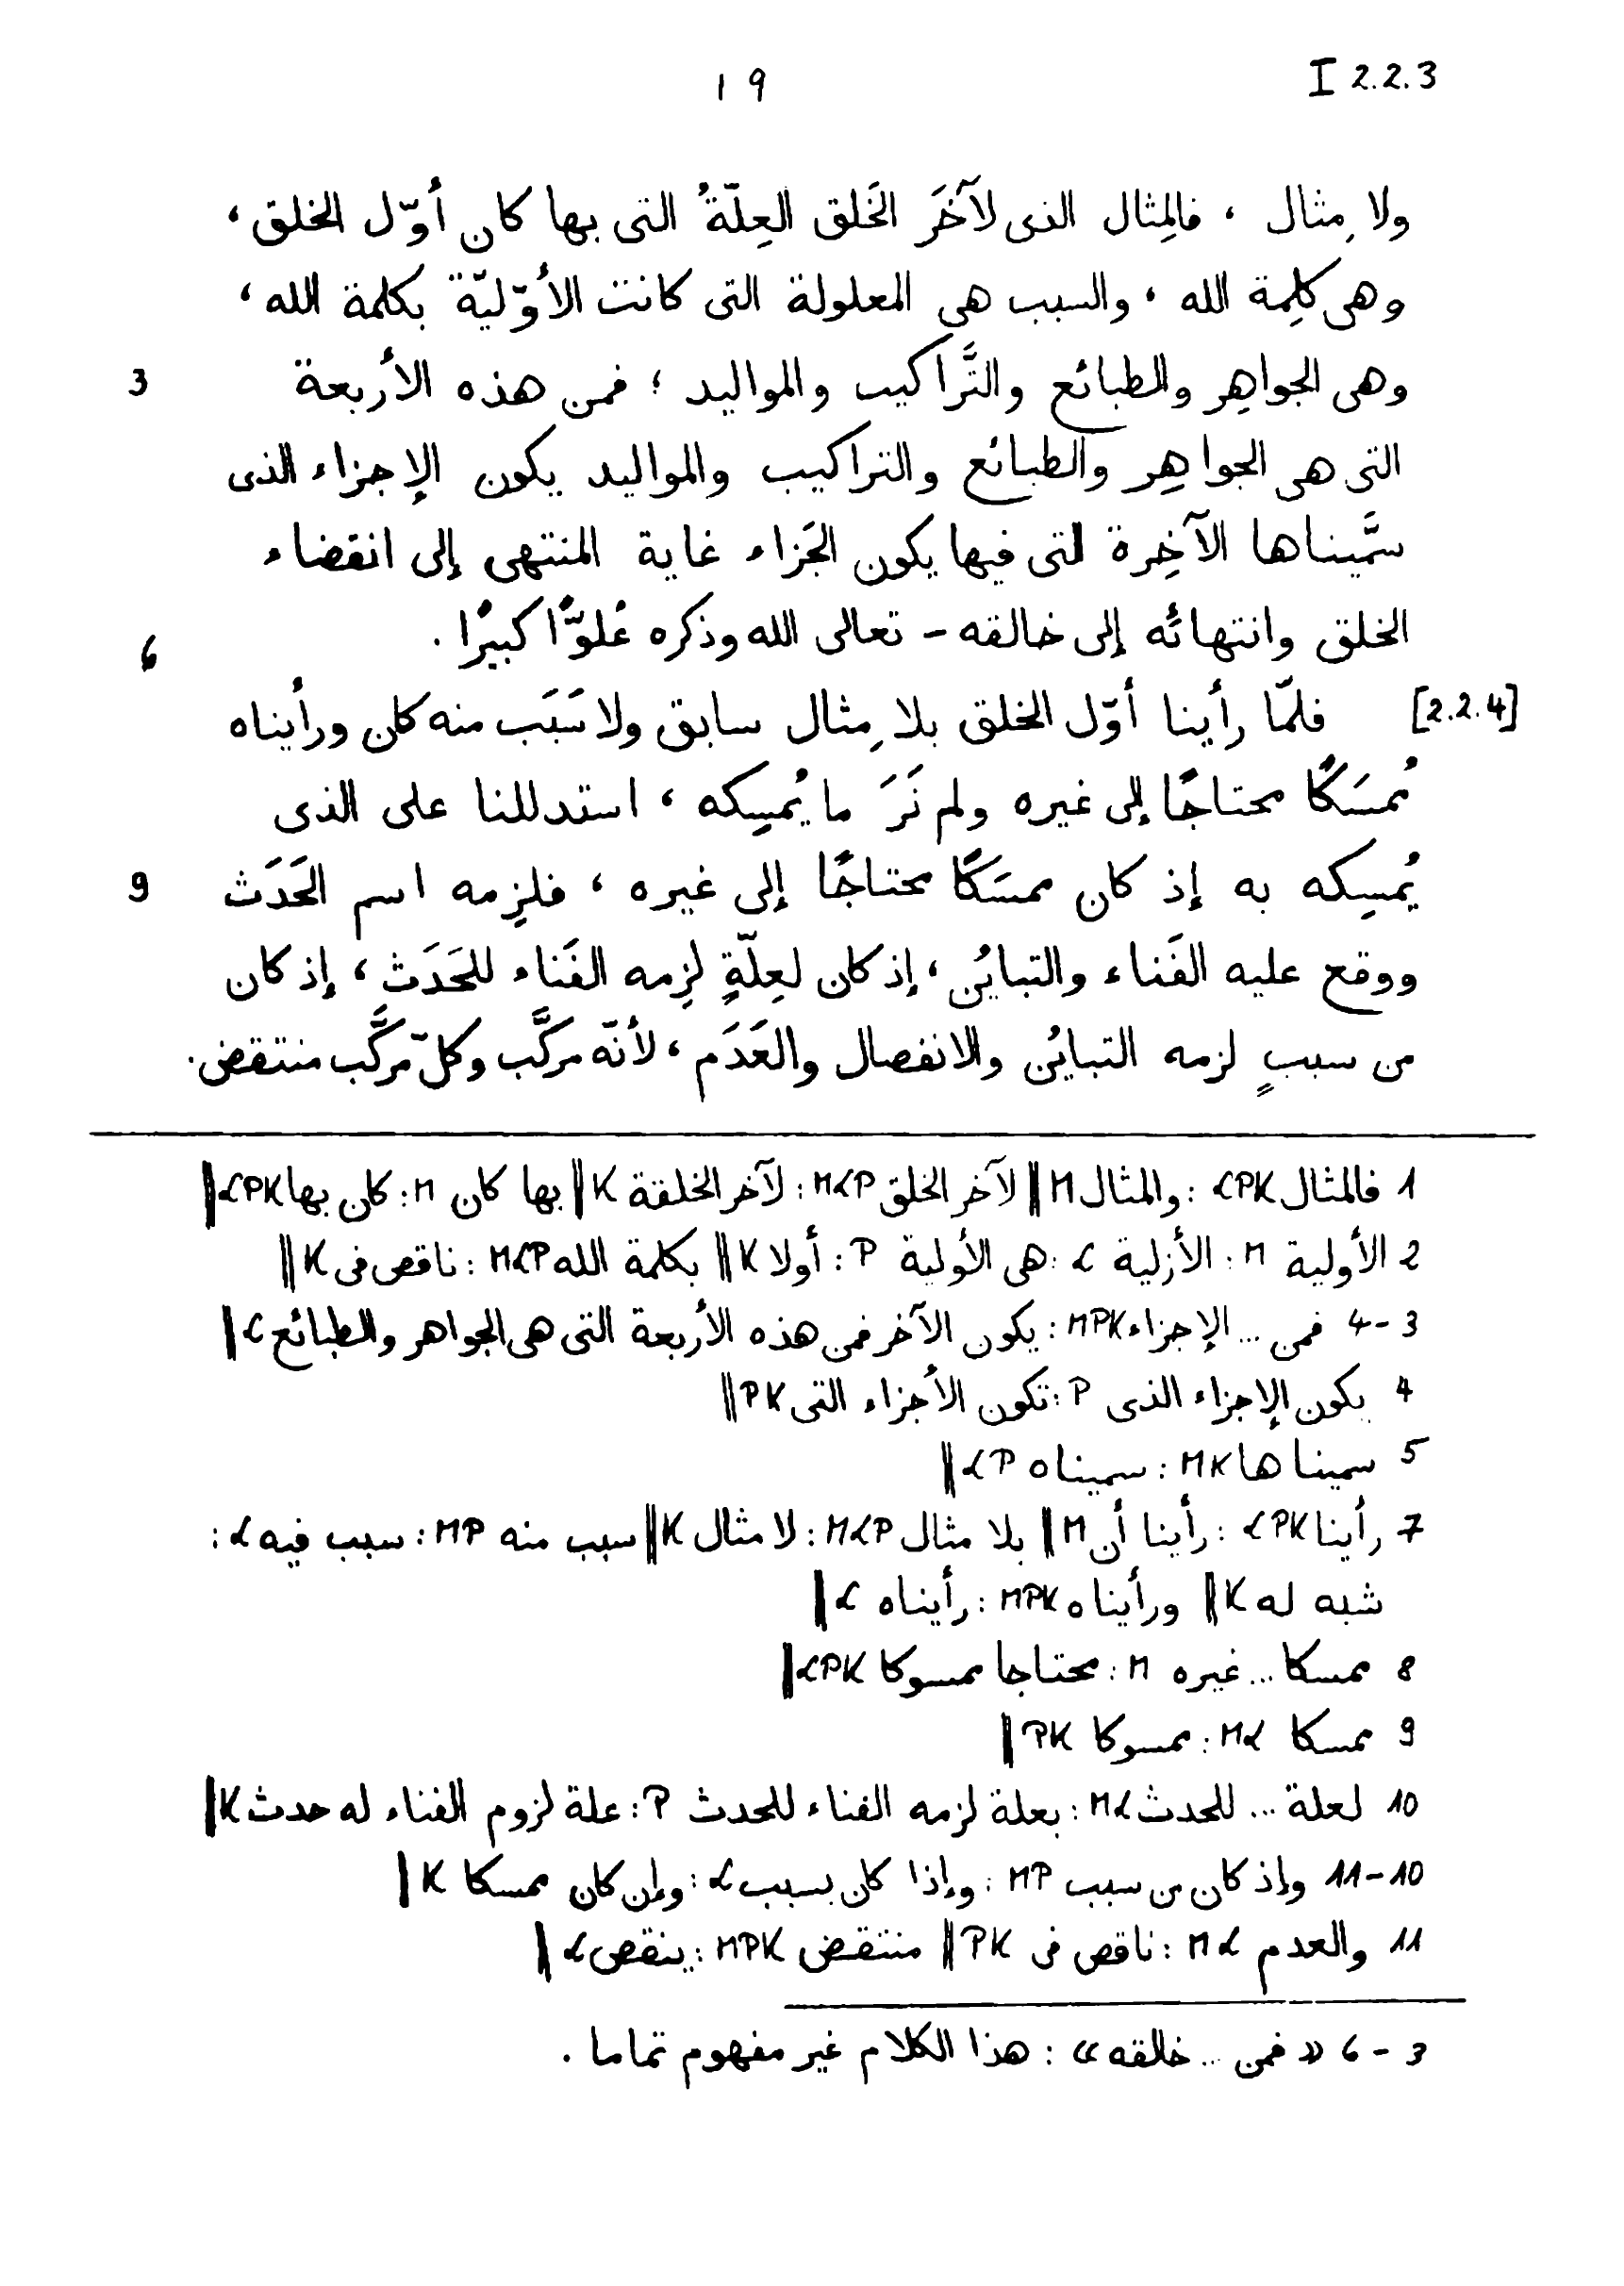 ١٩ I 2.2.3
ولا مِثال ، فالمِثال الذى لآخَر الخَلق العِلّةُ التى بها كان أوّل الخلق ،
وهى كلِمة الله ، والسبب هى المعلولة التى كانت الأوّليّة بكلمة الله ،
وهى الجواهِر والطبائع والتَّراكيب والمواليد ؛ فمن هذه الأربعة 3
التى هى الجواهِر والطبائع والتراكيب والمواليد يكون الإجزاء الذى
سمَّيناها الآخِرة لتى فيها يكون الجَزاء غاية المنتهى إلى انقضاء
الخلق وانتهائه إلى خالقه - تعالى الله وذكره عُلوًّا كبيرًا . 6
[2.2.4] فلمّا رأينا أوّل الخلق بلا مِثال سابق ولا سَبَب منه كان ورأيناه
مُمسَكًا محتاجًا إلى غيره ولم نَرَ ما يُمسِكه ، استدللنا على الذى
يُمسِكه به إذ كان ممسَكًا محتاجًا إلى غيره ، فلزِمه اسم الحَدَث 9
ووقع عليه الفَناء والتبايُن ، إذ كان لعِلّةٍ لزِمه الفَناء للحَدَث ، إذ كان
من سببٍ لزمه التبايُن والانفصال والعَدَم ، لأنّه مركَّب وكلّ مركَّب منتقض .
1 فالمثال LPK : والمثال M || لآخر الخلق MLP : لآخر الخلقة K || بها كان M : كان بها LPK ||
2 الأولية M : الأزلية L : هى الأولية P : أولا K || بكلمة الله MLP : ناقص فى K ||
3-4 فمن ... الإجزاء MPK : يكون الآخر فمن هذه الأربعة التى هى الجواهر والطبائع L ||
4 يكون الإجزاء الذى P : تكون الأجزاء التى PK ||
5 سميناها MK : سميناه LP ||
7 رأينا LPK : رأينا أن M || بلا مثال MLP : لا مثال K || سبب منه MP : سبب فيه L :
شبه له K || ورأيناه MPK : رأيناه L ||
8 ممسكا ... غيره M : محتاجا ممسوكا LPK ||
9 ممسكا ML : ممسوكا PK ||
10 لعلة ... للحدث ML : بعلة لزمه الفناء للحدث P : علة لزوم الفناء له حدث K ||
10-11 وإذ كان من سبب MP : وإذا كان بسبب L : وإن كان ممسكا K ||
11 والعدم ML : ناقص فى PK || منتقض MPK : ينقص L ||
3 - 6 « فمن ... خالقه » : هذا الكلام غير مفهوم تماما .